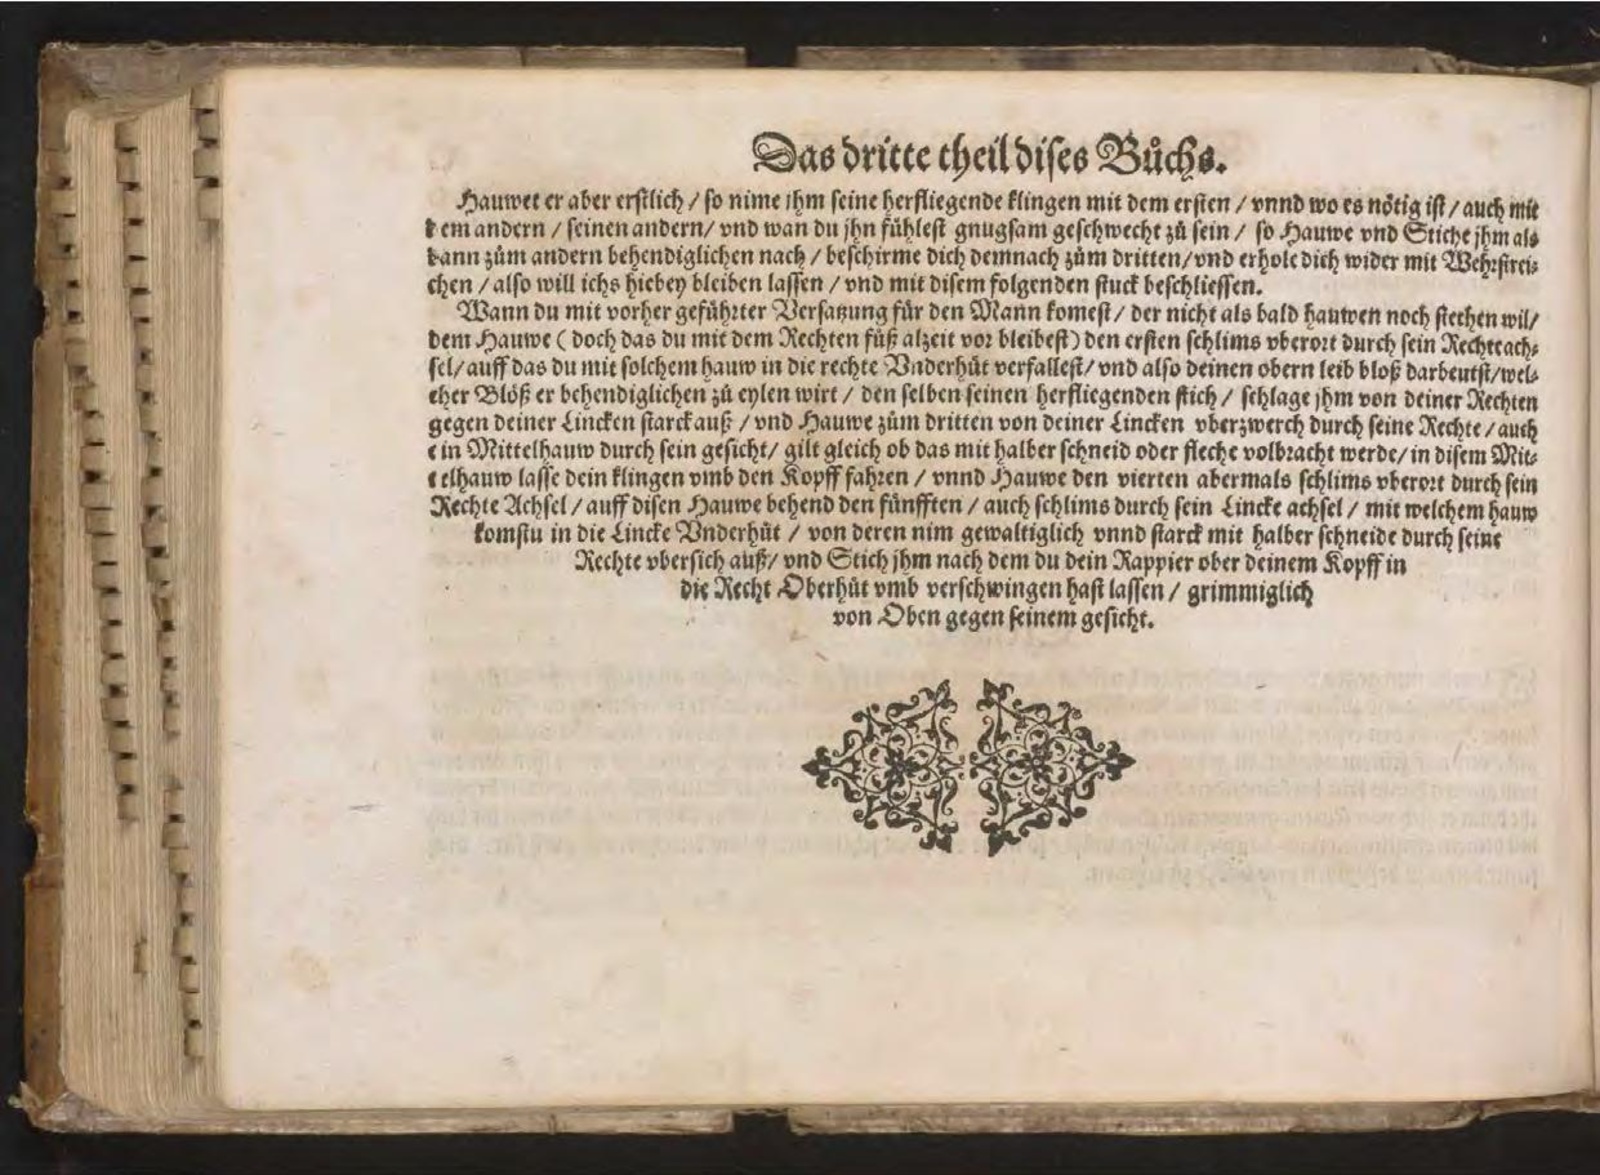 Das dritte theil dises Bůchs.
Hauwet er aber erstlich / so nime jhm seine herfliegende klingen mit dem ersten / vnnd wo es nötig ist / auch mit
dem andern / seinen andern / vnd wan du jhn fühlest gnugsam geschwecht zů sein / so Hauwe vnd Stiche jhm als
dann zům andern behendiglichen nach / beschirme dich demnach zům dritten / vnd erhole dich wider mit Wehrstrei⸗
chen / also will ichs hiebey bleiben lassen / vnd mit disem folgenden stuck beschliessen.
Wann du mit vorher geführter Versatzung für den Mann komest / der nicht als bald hauwen noch stechen wil /
dem Hauwe ( doch das du mit dem Rechten fůß alzeit vor bleibest ) den ersten schlims vberort durch sein Rechte ach⸗
sel / auff das du mit solchem hauw in die rechte Vnderhůt verfallest / vnd also deinen obern leib bloß darbeutst / wel⸗
cher Blöß er behendiglichen zů eylen wirt / den selben seinen herfliegenden stich / schlage jhm von deiner Rechten
gegen deiner Lincken starck auß / vnd Hauwe zům dritten von deiner Lincken vberzwerch durch seine Rechte / auch
ein Mittelhauw durch sein gesicht / gilt gleich ob das mit halber schneid oder fleche volbracht werde / in disem Mit⸗
telhauw lasse dein klingen vmb den Kopff fahren / vnnd Hauwe den vierten abermals schlims vberort durch sein
Rechte Achsel / auff disen Hauwe behend den fünfften / auch schlims durch sein Lincke achsel / mit welchem hauw
komstu in die Lincke Vnderhůt / von deren nim gewaltiglich vnnd starck mit halber schneide durch seine
Rechte vbersich auß / vnd Stich jhm nach dem du dein Rappier ober deinem Kopff in
die Recht Oberhůt vmb verschwingen hast lassen / grimmiglich
von Oben gegen seinem gesicht.